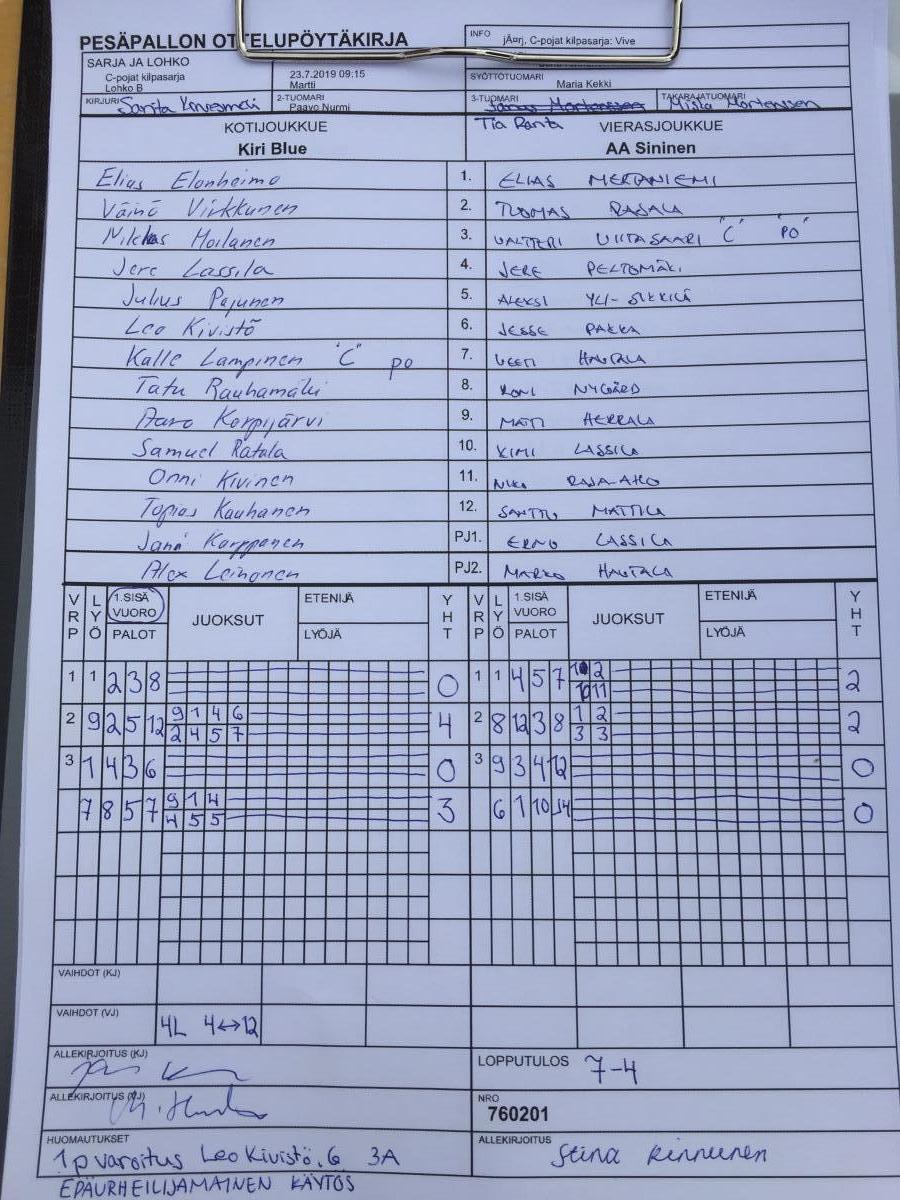 PESÄPALLON OTTELUPÖYTÄKIRJA
INFO jÃ¤rj, C-pojat kilpasarja: Vive
SARJA JA LOHKO
C-pojat kilpasarja
Lohko B
23.7.2019 09:15
Martti
SYÖTTÖTUOMARI
Maria Kekki
KIRJURI
2-TUOMARI
Paavo Nurmi
3-TUOMARI
TAKARAJATUOMARI
Miska Mortenssen
KOTIJOUKKUE
Tia Ranta VIERASJOUKKUE
Kiri Blue
AA Sininen
Elias Elonheimo 1. ELIAS MERTANIEMI
Väinö Virkkunen 2. TUOMAS RAJALA
Niklas Moilanen 3. VALTTERI VIITASAARI "C" "PO"
Jere Lassila 4. JERE PELTOMÄKI
Julius Pajunen 5. ALEKSI YLI-SIKKILÄ
Leo Kivistö 6. JESSE PAKKA
Kalle Lampinen "C" po 7. VEETI HAUTALA
Tatu Rauhamäki 8. RONI NYGÅRD
Aaro Korpijärvi 9. MATTI HERRALA
Samuel Ratala 10. KIMI LASSILA
Onni Kivinen 11. NIKO RAJA-AHO
Topias Kauhanen 12. SANTTU MATTILA
Jana Karppanen PJ1. ERNO LASSILA
Alex Leinonen PJ2. MARKO HAUTALA
VRP LYÖ 1.SISÄ VUORO PALOT JUOKSUT ETENIJÄ LYÖJÄ YHT VRP LYÖ 1.SISÄ VUORO PALOT JUOKSUT ETENIJÄ LYÖJÄ YHT
1 1 2 3 8 0 1 1 4 5 7 10 2 2
10 11
2 9 2 5 12 9 1 4 6 4 2 8 12 3 8 1 2 2
2 4 5 7 3 3
3 1 4 3 6 0 3 9 3 4 12 0
7 8 5 7 9 1 4 3 6 1 10 14 0
4 5 5
VAIHDOT (KJ)
VAIHDOT (VJ) 4L 4↔12
ALLEKIRJOITUS (KJ)
LOPPUTULOS 7-4
ALLEKIRJOITUS (VJ)
NRO
760201
HUOMAUTUKSET
1p varoitus Leo Kivistö, 6 3A
EPÄURHEILIJAMAINEN KÄYTÖS
ALLEKIRJOITUS
Stina Kinnunen